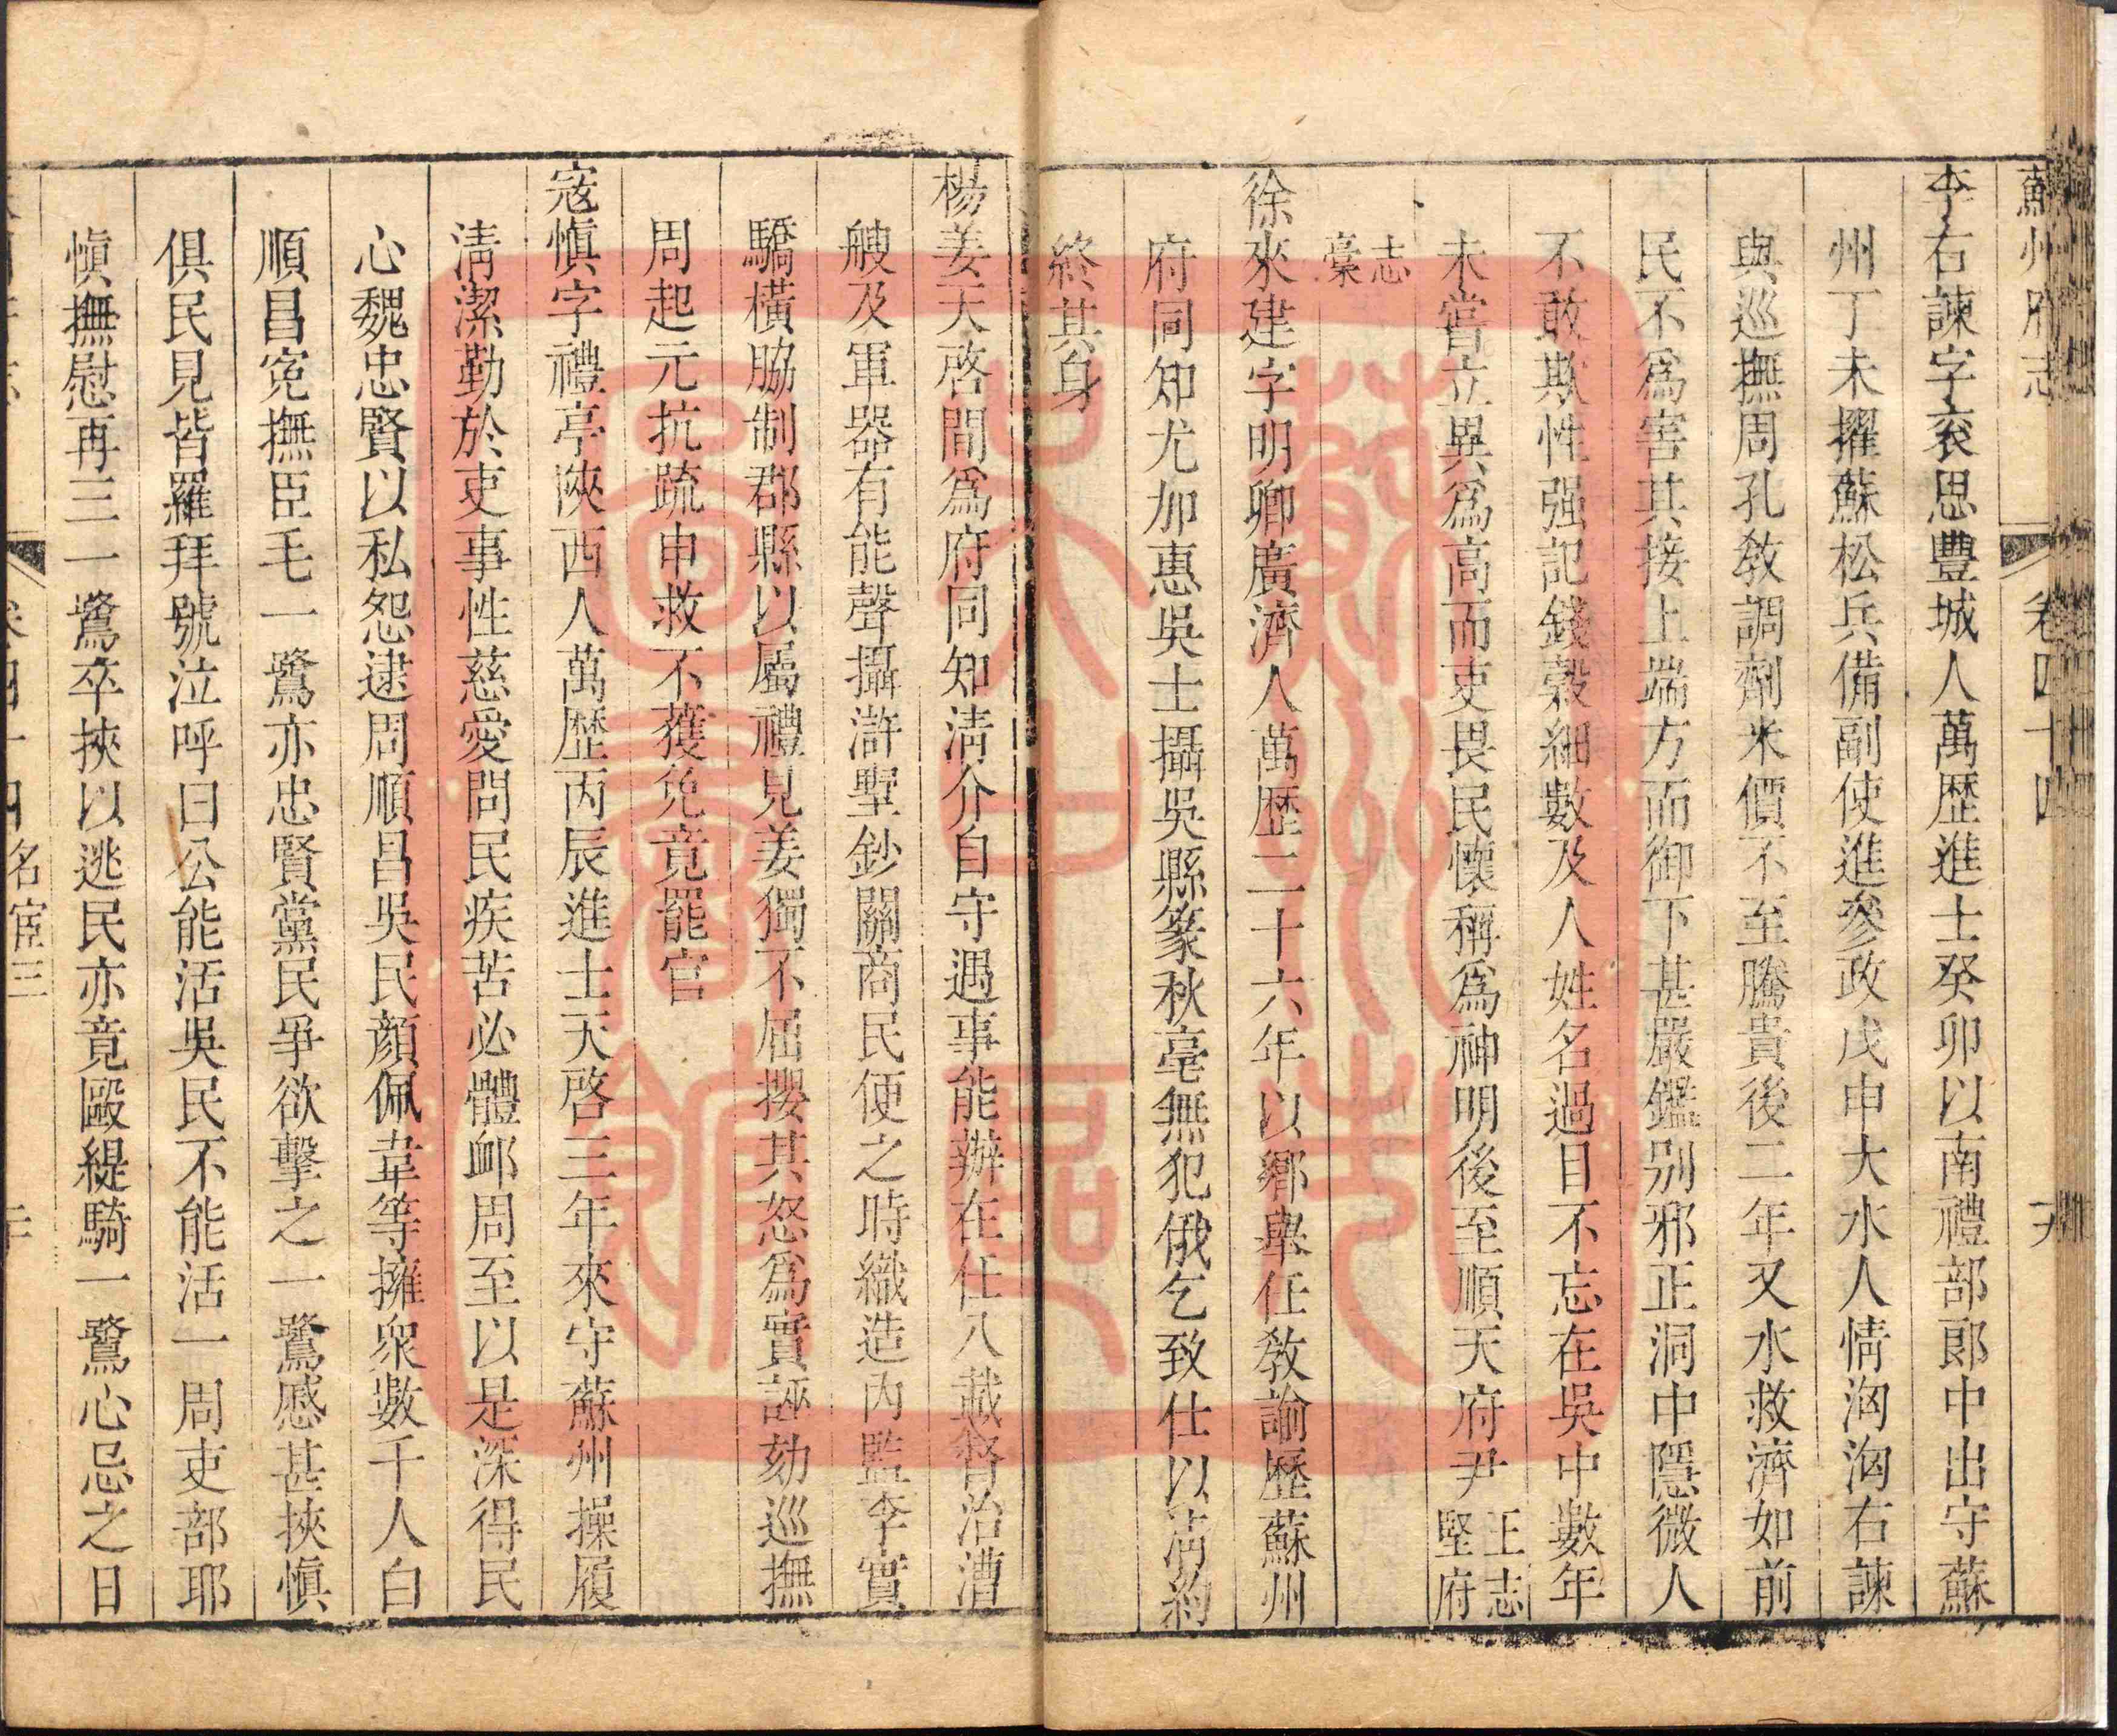 蘇州府志 卷四十四
李右諫字袞思豐城人萬歷進士癸卯以南禮部郎中出守蘇
州丁未擢蘇松兵備副使進參政戊申大水人情洶洶右諫
與巡撫周孔敎調劑米價不至騰貴後二年又水救濟如前
民不爲害其接上端方而御下甚嚴鑑别邪正洞中隱微人
不敢欺性强記錢穀細數及人姓名過目不忘在吳中數年
未嘗立異爲高而吏畏民懷稱爲神明後至順天府尹王志堅府
志橐
徐來建字明卿廣濟人萬歷二十六年以鄉舉任敎諭歷蘇州
府同知尤加惠吳士攝吳縣篆秋毫無犯俄乞致仕以淸約
終其身
楊姜天啓間爲府同知淸介自守遇事能辦在任八載督治漕
艘及軍器有能聲攝滸墅鈔關商民便之時織造內監李實
驕橫脇制郡縣以屬禮見姜獨不屈攖其怒爲實誣劾巡撫
周起元抗疏申救不獲免竟罷官
寇愼字禮亭陝西人萬歷丙辰進士天啓三年來守蘇州操履
淸潔勤於吏事性慈愛問民疾苦必體䘏周至以是深得民
心魏忠賢以私怨逮周順昌吳民顏佩韋等擁衆數千人白
順昌寃撫臣毛一鷺亦忠賢黨民爭欲擊之一鷺慼甚挾愼
俱民見皆羅拜號泣呼曰公能活吳民不能活一周吏部耶
愼撫慰再三一鷺卒挾以逃民亦竟毆緹騎一鷺心忌之日
卷四十四名宦三